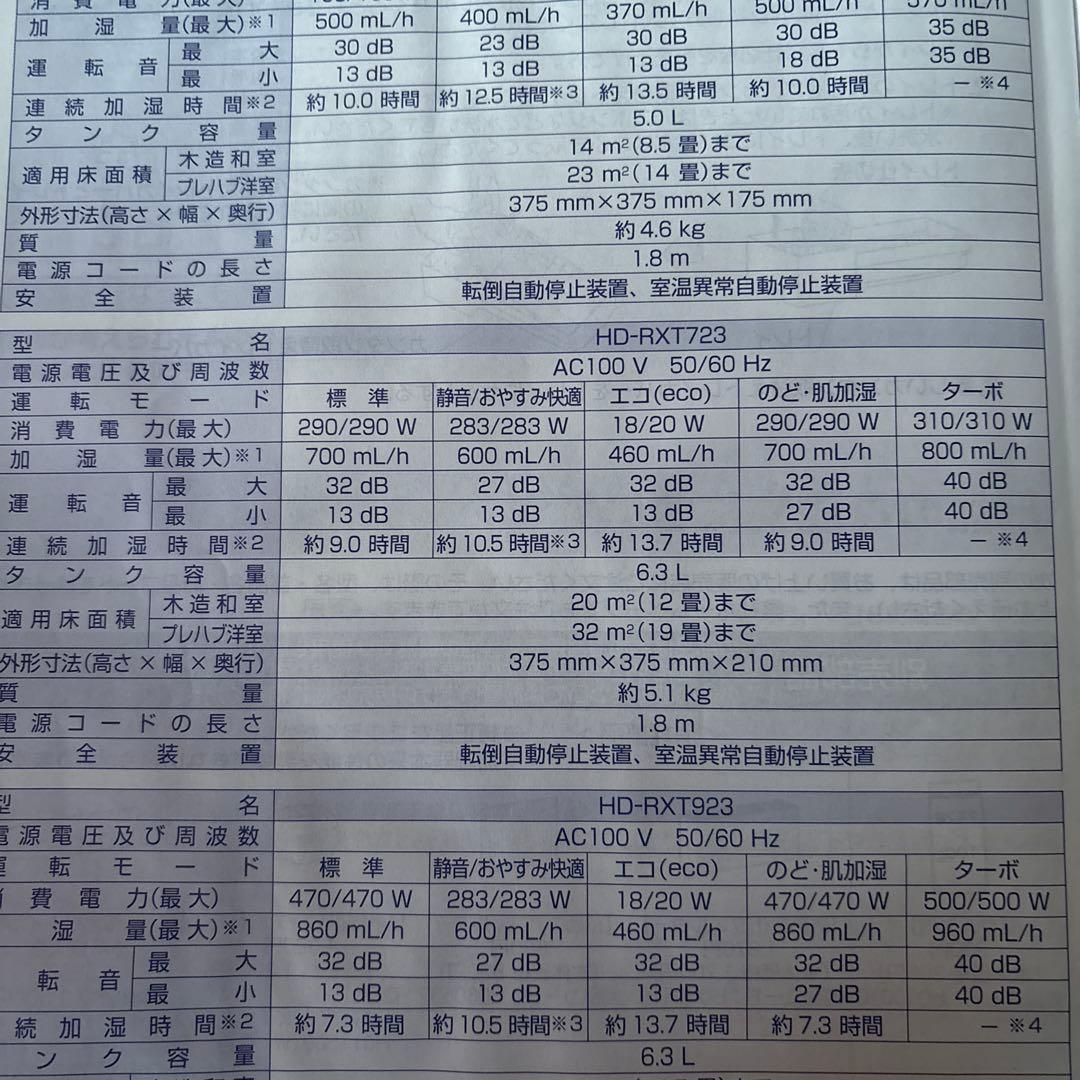 消費電力(最大)
加湿量(最大)※1 500 mL/h 400 mL/h 370 mL/h 500 mL/h 370 mL/h
運転音 最大 30 dB 23 dB 30 dB 30 dB 35 dB
最小 13 dB 13 dB 13 dB 18 dB 35 dB
連続加湿時間※2 約10.0 時間 約12.5 時間※3 約13.5 時間 約10.0 時間 － ※4
タンク容量 5.0 L
適用床面積 木造和室 14 m²(8.5 畳)まで
プレハブ洋室 23 m²(14 畳)まで
外形寸法(高さ×幅×奥行) 375 mm×375 mm×175 mm
質量 約4.6 kg
電源コードの長さ 1.8 m
安全装置 転倒自動停止装置、室温異常自動停止装置
型名 HD-RXT723
電源電圧及び周波数 AC100 V 50/60 Hz
運転モード 標準 静音/おやすみ快適 エコ(eco) のど・肌加湿 ターボ
消費電力(最大) 290/290 W 283/283 W 18/20 W 290/290 W 310/310 W
加湿量(最大)※1 700 mL/h 600 mL/h 460 mL/h 700 mL/h 800 mL/h
運転音 最大 32 dB 27 dB 32 dB 32 dB 40 dB
最小 13 dB 13 dB 13 dB 27 dB 40 dB
連続加湿時間※2 約9.0 時間 約10.5 時間※3 約13.7 時間 約9.0 時間 － ※4
タンク容量 6.3 L
適用床面積 木造和室 20 m²(12 畳)まで
プレハブ洋室 32 m²(19 畳)まで
外形寸法(高さ×幅×奥行) 375 mm×375 mm×210 mm
質量 約5.1 kg
電源コードの長さ 1.8 m
安全装置 転倒自動停止装置、室温異常自動停止装置
型名 HD-RXT923
電源電圧及び周波数 AC100 V 50/60 Hz
運転モード 標準 静音/おやすみ快適 エコ(eco) のど・肌加湿 ターボ
消費電力(最大) 470/470 W 283/283 W 18/20 W 470/470 W 500/500 W
湿量(最大)※1 860 mL/h 600 mL/h 460 mL/h 860 mL/h 960 mL/h
転音 最大 32 dB 27 dB 32 dB 32 dB 40 dB
最小 13 dB 13 dB 13 dB 27 dB 40 dB
続加湿時間※2 約7.3 時間 約10.5 時間※3 約13.7 時間 約7.3 時間 － ※4
ンク容量 6.3 L